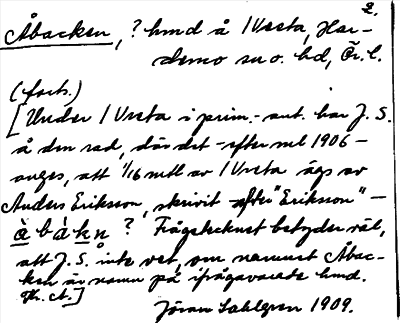 2.
Åbacken, ? hmd å 1 Vreta, Har-
demo sn o. hd, Ör. l.
(forts.)
[Under 1 Vreta i prim.-ant. har J. S.
å den rad, där det - efter ml 1906 -
anges, att 1/16 mtl av 1 Vreta ägs av
Anders Eriksson, skrivit efter "Eriksson" -
å b à k n ? Frågetecknet betyder väl,
att J. S. inte vet, om namnet Åbac-
ken är namn på ifrågavarande hmd.
]
Jöran Sahlgren 1909.